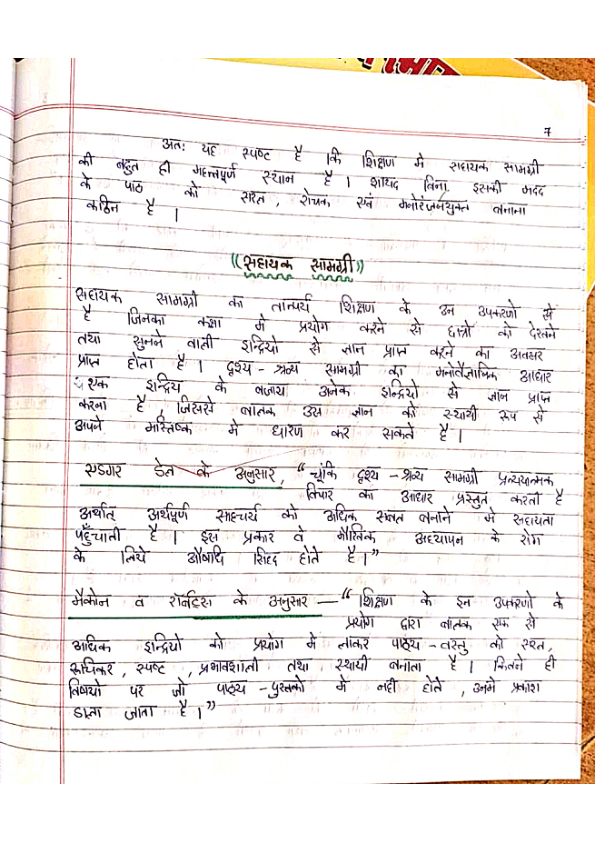 7
अतः यह स्पष्ट है कि शिक्षण मे सहायक सामग्री
की बहुत ही महत्त्वपूर्ण स्थान है । शायद बिना इसकी मदद
के पाठ को सरल, रोचक एवं मनोरंजनयुक्त बनाना
कठिन है ।
((सहायक सामग्री))
सहायक सामग्री का तात्पर्य शिक्षण के उन उपकरणो से
है जिनका कक्षा मे प्रयोग करने से छात्रो को देखने
तथा सुनने वाली इन्द्रियो से ज्ञान प्राप्त करने का अवसर
प्राप्त होता है । दृश्य - श्रव्य सामग्री का मनोवैज्ञानिक आधार
इन्द्रिय के बजाय अनेक इन्द्रियो से ज्ञान प्राप्त
करना है, जिससे बालक उस ज्ञान को स्थायी रूप से
अपने मस्तिष्क मे धारण कर सकते है ।
एडगर डेल के अनुसार, “चूंकि दृश्य - श्रव्य सामग्री प्रत्ययात्मक
विचार का आधार प्रस्तुत करती है
अर्थात् अर्थपूर्ण साहचर्य को अधिक सबल बनाने मे सहायता
पहुँचाती है । इस प्रकार वे मौखिक अध्यापन के रोग
के लिये औषधि सिद्ध होते है ।”
मैकोन व रॉबर्ट्स के अनुसार — “शिक्षण के इन उपकरणो के
प्रयोग द्वारा बालक एक से
अधिक इन्द्रियो को प्रयोग मे लाकर पाठ्य - वस्तु को सरल,
रूचिकर, स्पष्ट, प्रभावशाली तथा स्थायी बनाता है । कितने ही
विषयो पर जो पाठ्य - पुस्तको मे नही होते, उनमे प्रकाश
डाला जाता है ।”